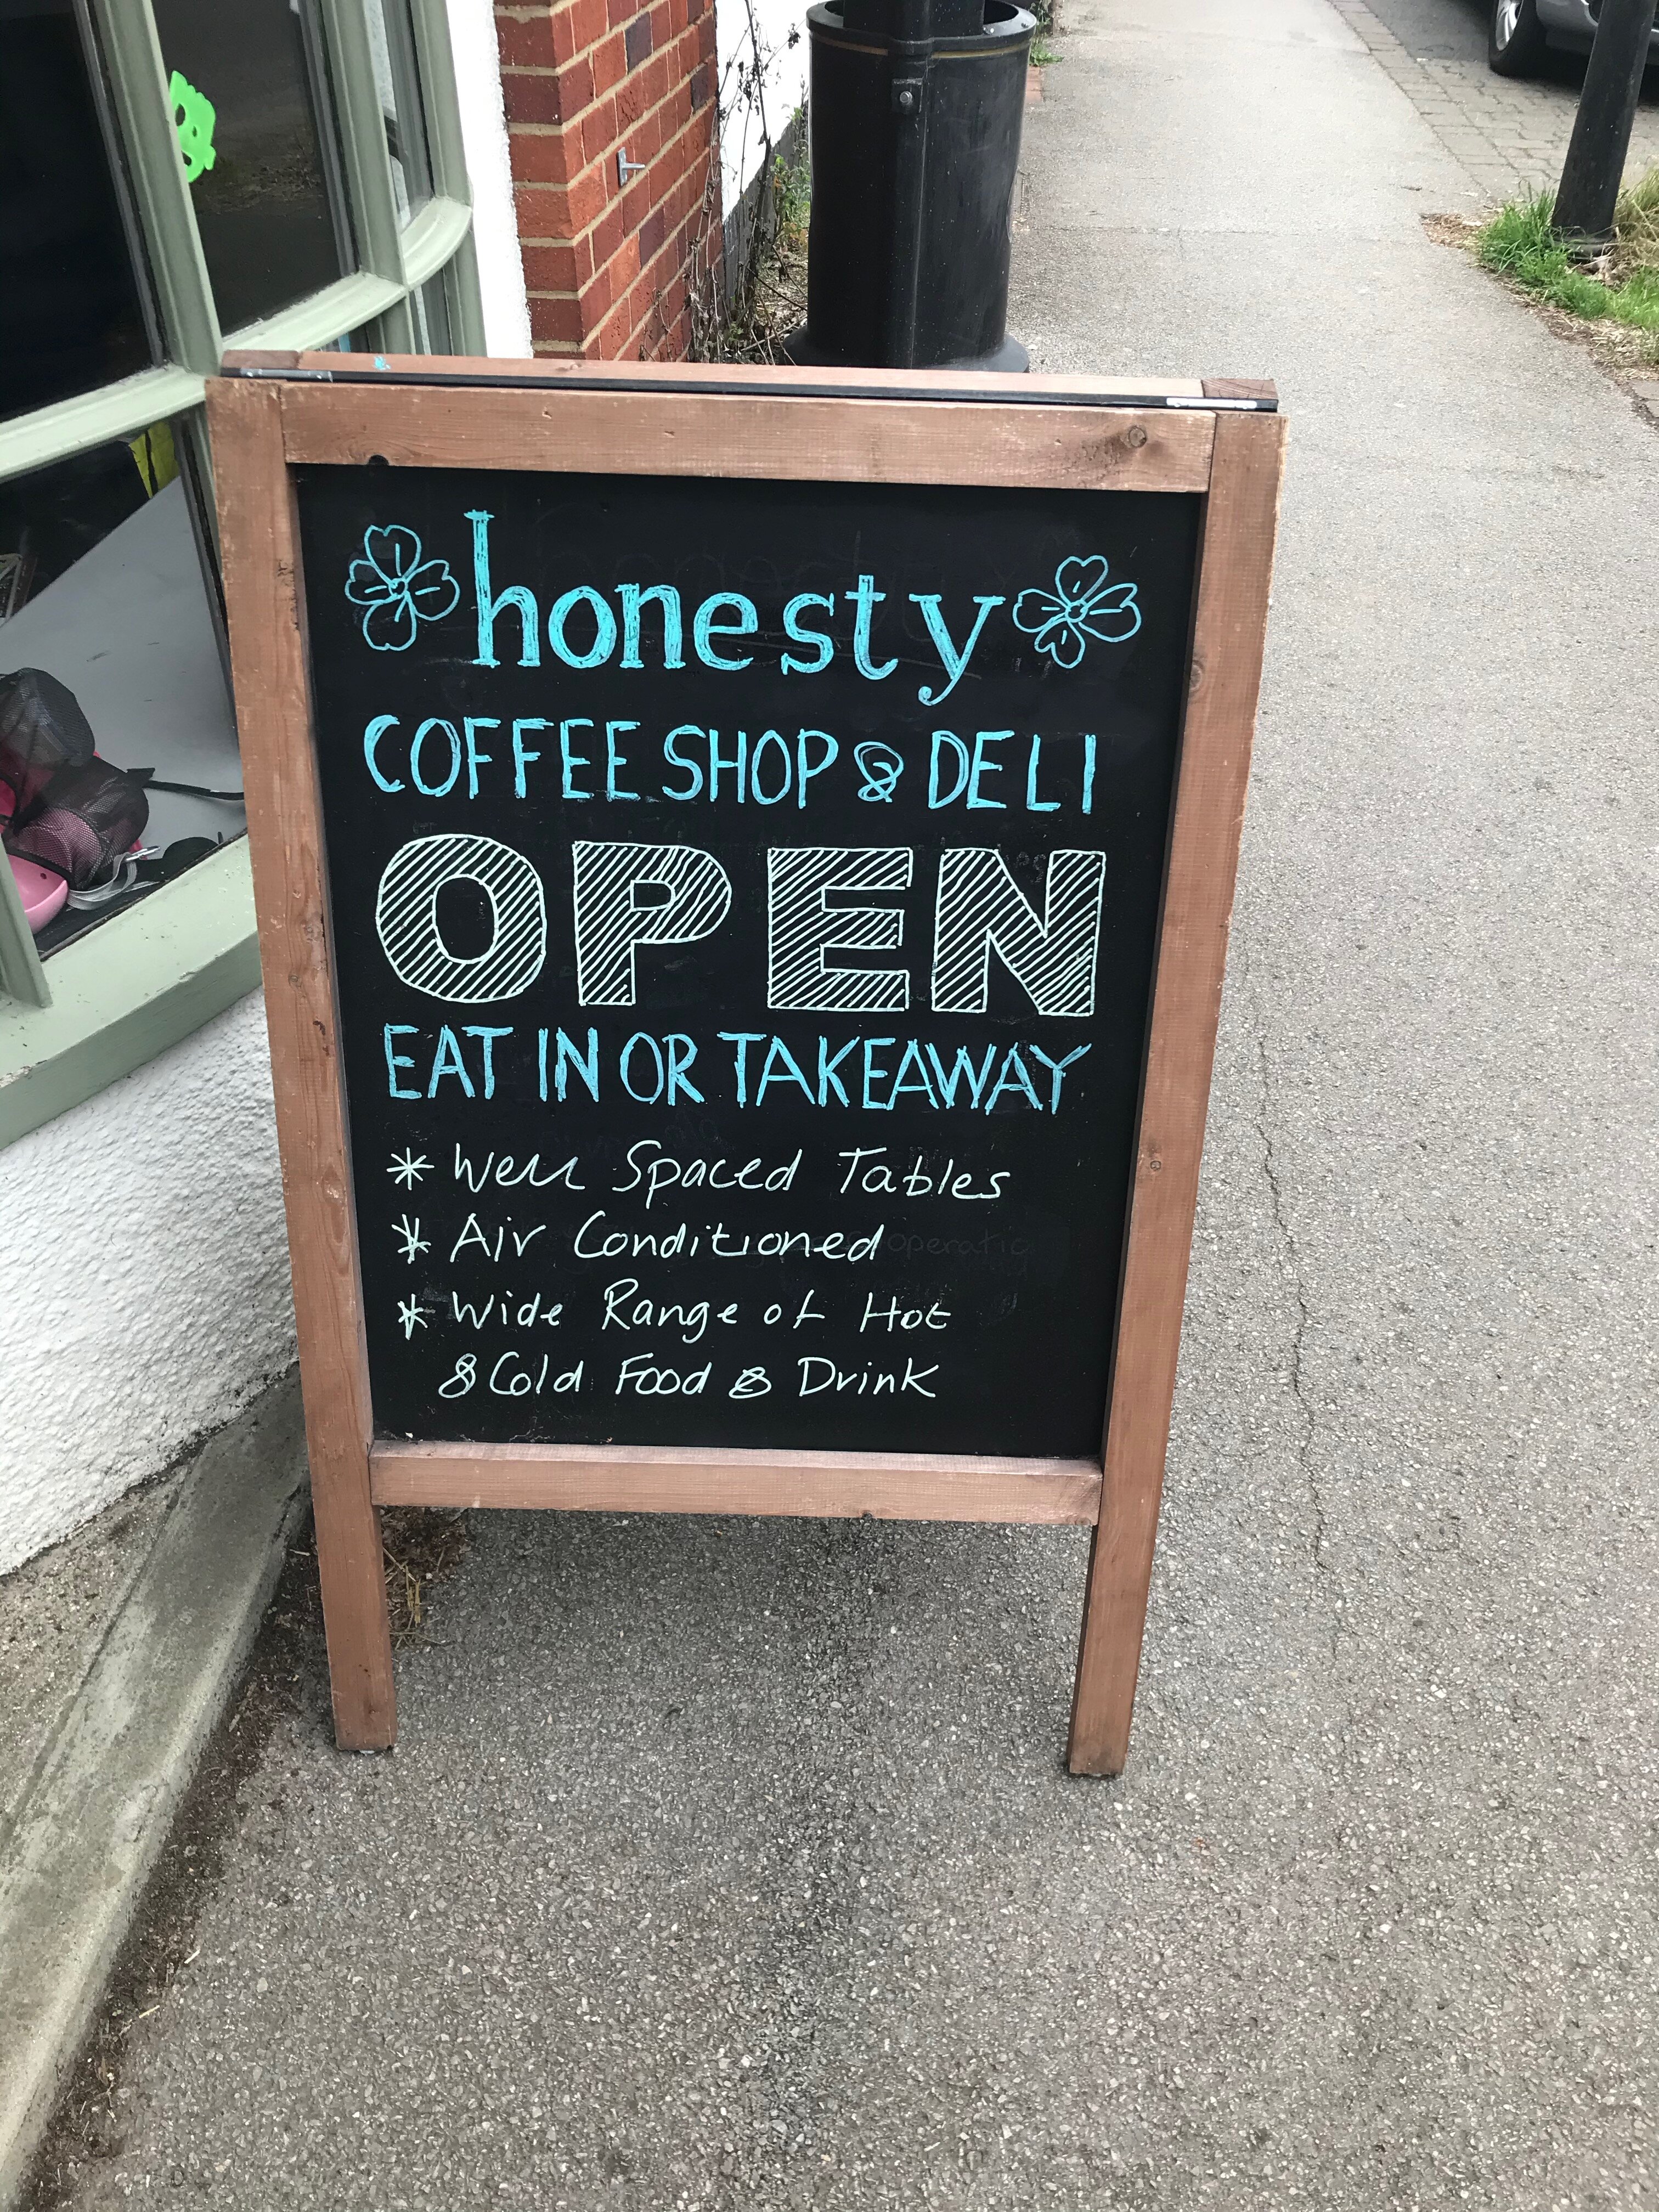 honesty
COFFEE SHOP & DELI
OPEN
EAT IN OR TAKEAWAY
* Well Spaced Tables
* Air Conditioned
* Wide Range of Hot
& Cold Food & Drink